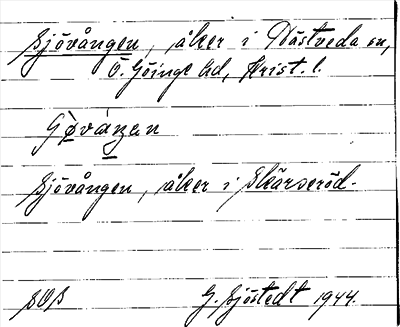 Sjövången, åker i Nästveda sn,
Ö. Göinge hd, Krist. l.
Sjövången, åker i Skärseröd.
G. Sjöstedt 1944.